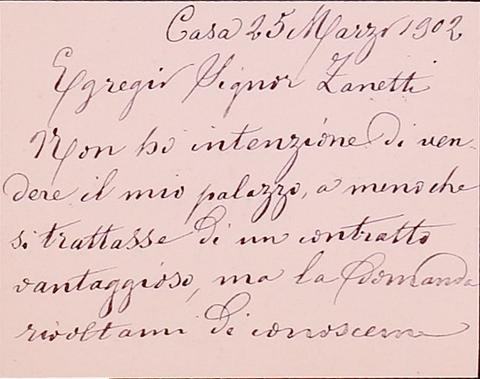 Casa 25 Marzo 1902
Egregio Signor Zanetti
Non ho intenzione di ven-
dere il mio palazzo, a meno che
si trattasse di un contratto
vantaggioso, ma la domanda
rivoltami di conoscerne